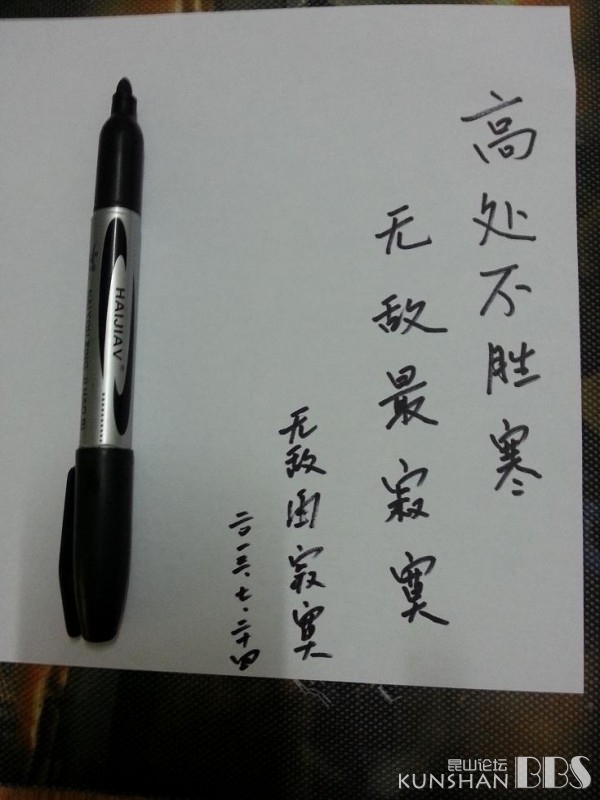 高处不胜寒
无敌最寂寞
无敌图寂寞
二〇一三.七.二十四
HAIJIAV
昆山论坛
KUNSHAN BBS